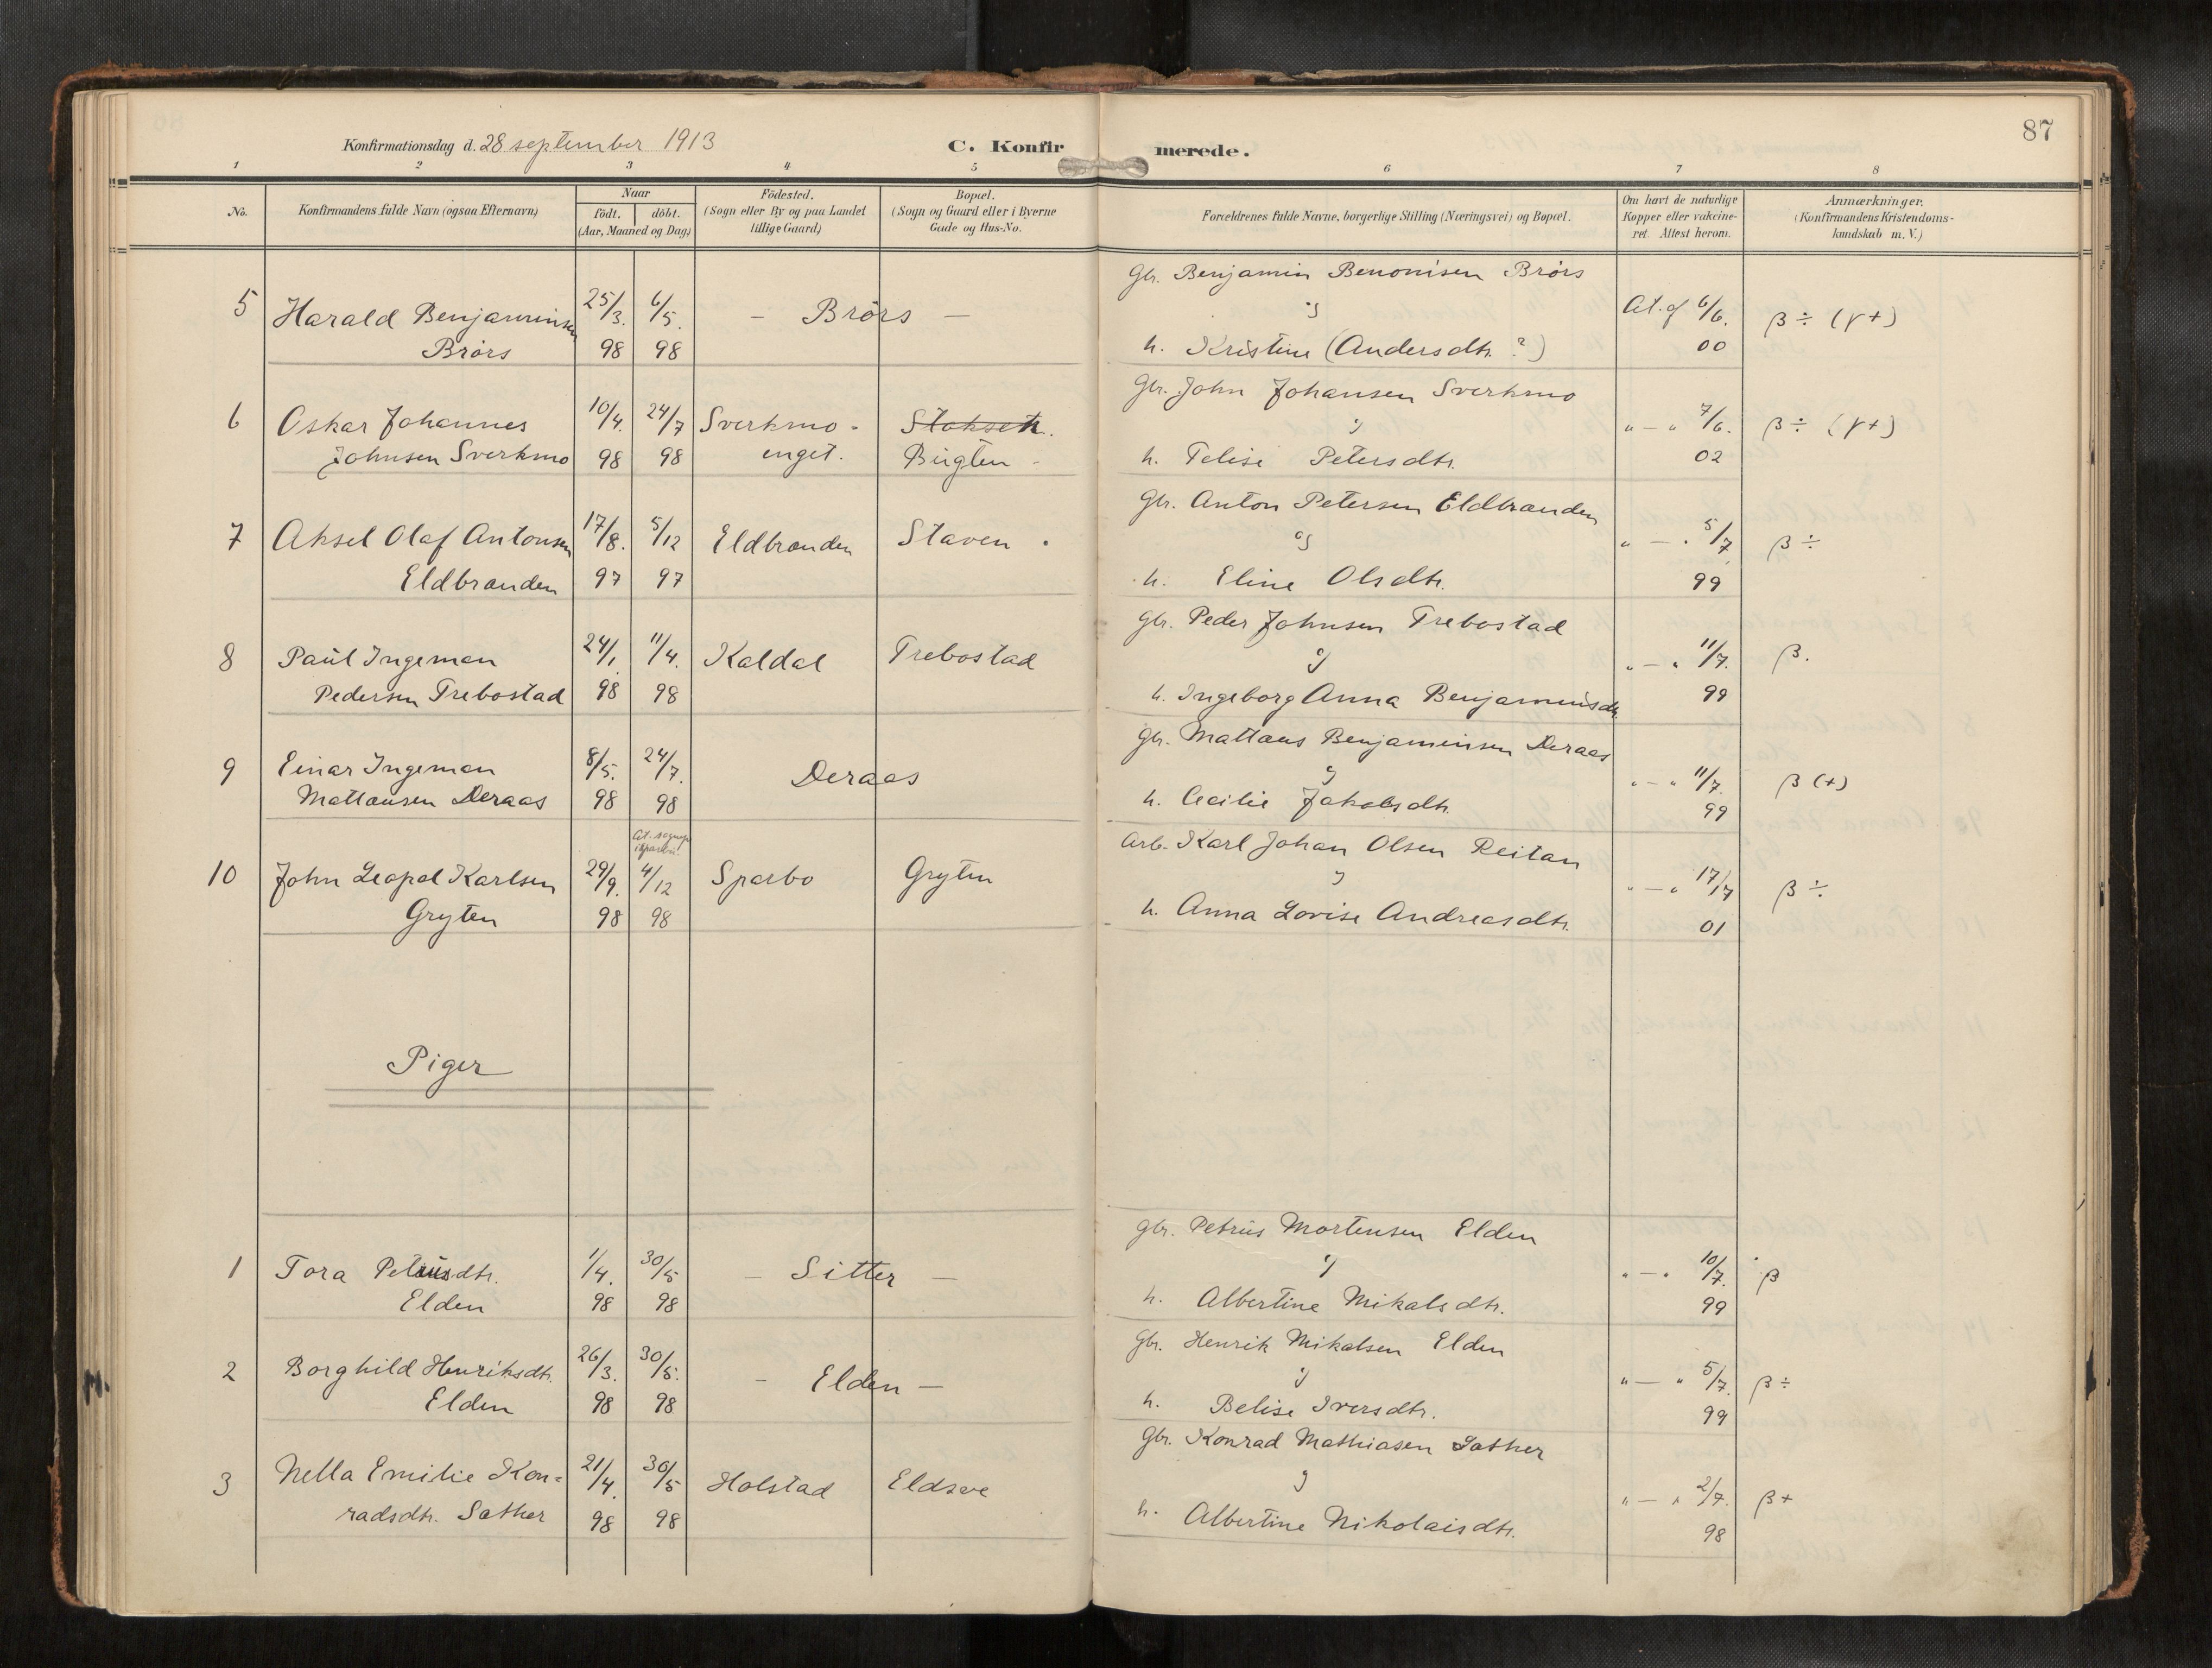 87
Konfirmationsdag d. 28 september 1913
C. Konfirmerede.
1 2 3 4 5 6 7 8
No.
Konfirmandens fulde Navn (ogsaa Efternavn)
Naar
födt. döbt.
(Aar, Maaned og Dag)
Födested.
(Sogn eller By og paa Landet
tillige Gaard)
Bopæl.
(Sogn og Gaard eller i Byerne
Gade og Hus-No.
Forældrenes fulde Navne, borgerlige Stilling (Næringsvei) og Bopæl.
Om havt de naturlige
Kopper eller vakcine-
ret. Attest herom.
Anmærkninger.
(Konfirmandens Kristendoms-
kundskab m. V.)
Gbr. Benjamin Benonisen Brörs
5 Harald Benjaminsen 25/3. 6/5. – Brörs – og At. af 6/6. β ÷ (γ+)
Brörs 98 98 h. Kristine (Andersdtr. ?) 00
Gbr. John Johansen Sverkmo
6 Oskar Johannes 10/4. 24/7 Sverkmo- Stokset. og " – " 7/6. β ÷ (γ+)
Johnsen Sverkmo 98 98 enget. Bugten h. Telise Petersdtr. 02
Gbr. Anton Petersen Eldbranden
7 Aksel Olaf Antonsen 17/8. 5/12 Eldbranden Staven . og " – " 5/7 β ÷
Eldbranden 97 97 h. Eline Olsdtr. 99
Gbr. Peder Johnsen Trebostad
8 Paul Ingeman 24/1. 11/4. Kaldal Trebostad og " – " 11/7. β.
Pedersen Trebostad 98 98 h. Ingeborg Anna Benjaminsdtr. 99
Gbr. Mattæus Benjaminsen Deraas
9 Einar Ingeman 8/5. 24/7. Deraas og " – " 11/7. β (+)
Mattæusen Deraas 98 98 h. Cecilie Jakobsdtr. 99
Arb. Karl Johan Olsen Reitan
10 John Leopol Karlsen 29/9. 4/12 Sparbo Gryten og " – " 17/7 β ÷
Gryten 98 98 h. Anna Lovise Andreasdtr. 01
Piger
Gbr. Petrus Mortensen Elden
1 Tora Petrusdtr. 1/4. 30/5 – Sitter – og " – " 10/7. β
Elden 98 98 h. Albertine Mikalsdtr. 99
Gbr. Henrik Mikalsen Elden
2 Borghild Henriksdtr. 26/3. 30/5. – Elden – og " – " 5/7. β ÷
Elden 98 98 h. Belise Iversdtr. 99
Gbr. Konrad Mathiasen Sæther
3 Nella Emilie Kon= 21/4. 30/5 Holstad Eldsve og " – " 2/7. β +
radsdtr. Sæther 98 98 h. Albertine Nikolaisdtr. 98